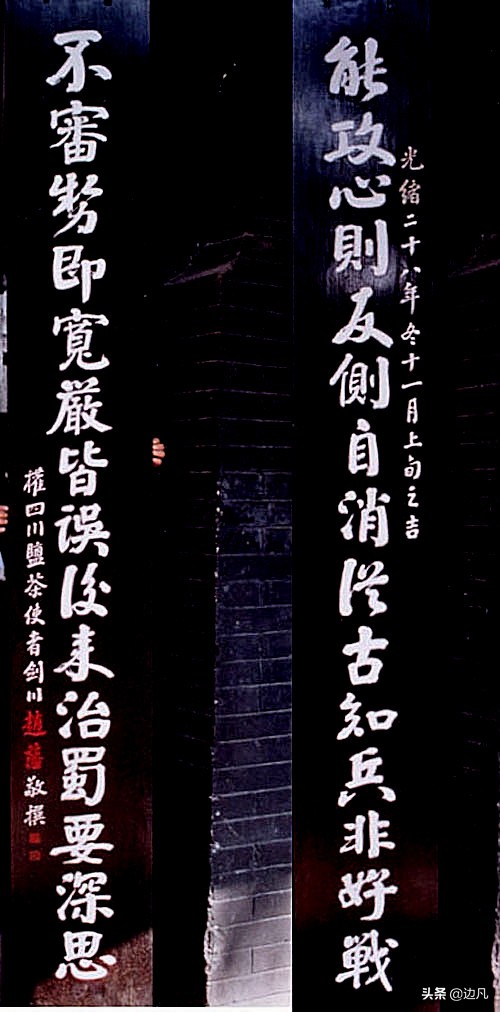 光緒二十八年冬十一月上旬之吉
能攻心則反側自消從古知兵非好戰
不審勢即寬嚴皆誤後來治蜀要深思
權四川鹽茶使者劍川趙藩敬撰
头条 @边凡